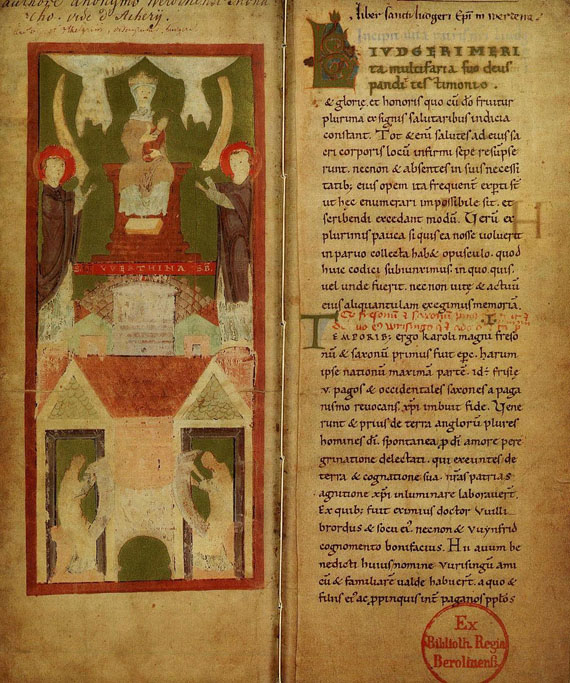 authore anonymo Werdinensi mona
cho. vide d'Achery.
VVERTHINA
liber sancti liudgeri Epi in werdena.
LIVDGERI MERI
ta multifaria suo deus
pandit testimonio.
& glorię. et honoris quo cū dō fruitur
plurima ex signis salutaribus indicia
constant. Tot & enī salutes ad eius sa
cri corporis locū infirmi sepe resūpse
runt. necnon & absentes in suis necessi
tatib; eius opem ita frequent experti sr̄
ut hec enumerari impossibile sit. et
scribendi excedant modū. Verū ex
plurimis pauca si quis ea nosse voluerit
in parvo collecta hab& opusculo. quod
huic codici subiunximus. in quo. quis.
vel unde fuerit. nec non vitę & actuū
eius aliquantulam exegimus memoriā.
TEMPORIB; ergo karoli magni freso
nū & saxonū primus fuit epc. harum
ipse nationū maximā partē. id: frisię
v. pagos & occidentales saxones a paga
nismo revocans. xpi imbuit fide. Vene
runt & prius de terra anglorū plures
homines dī. spontanea. p dī amore pere
grinatione delectati. qui exeuntes de
terra & cognatione sua. nr̄as patrias
agnitione xpi inluminare laboraverт̄.
Ex quib; fuit eximius doctor Vuilli
brordus & socii ei'. necnon & Vuynfrid
cognomento bonifacius. Hii avum be
nedicti huius nomine Vursingū ami
cū & familiarē valde habuerт̄. a quo &
filiis ei' ac ppinquis int paganos pptos
Ex
Biblioth. Regia
Berolinensi.